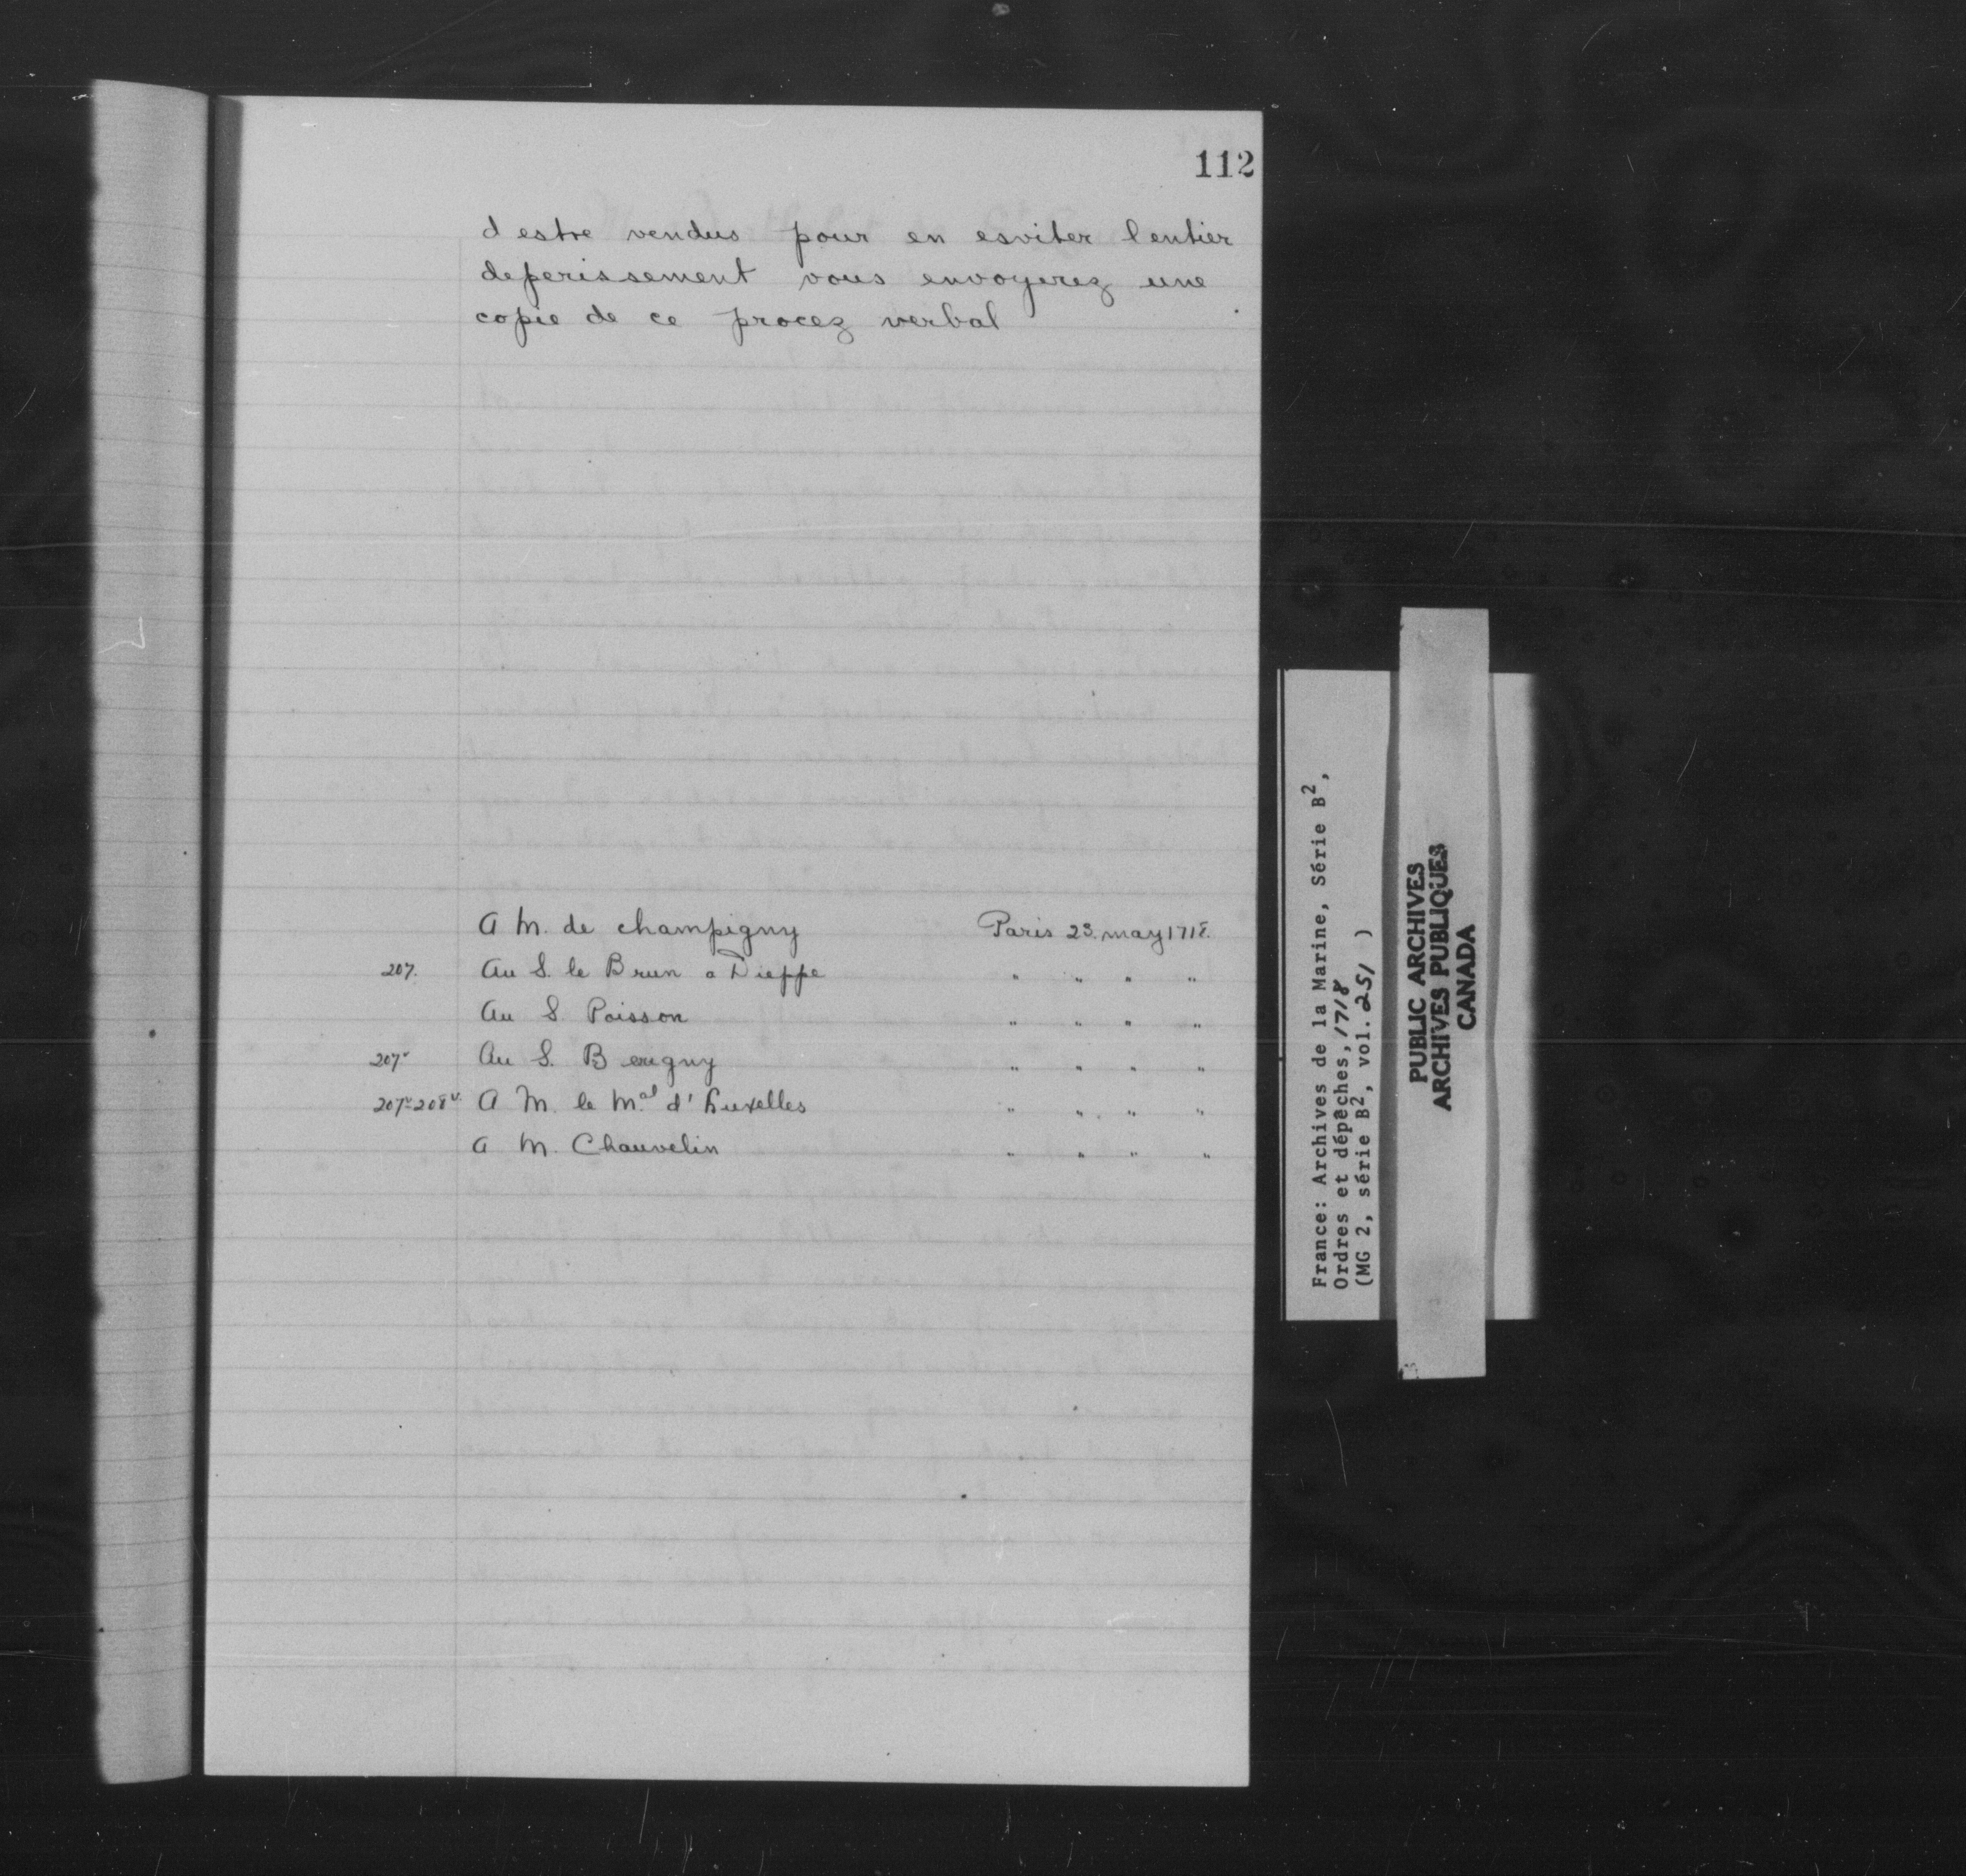 112
d estre vendus pour en esviter l entier
deperissement vous envoyerez une
copie de ce procez verbal
a M. de champigny Paris 23. may 1718.
207. Au S. le Brun a Dieppe " " " "
Au S. Poisson " " " "
207v Au S. Berigny " " " "
207v-208v. A M. le M.al d' huxelles " " " "
a M. Chauvelin " " " "
France: Archives de la Marine, Série B2,
Ordres et dépêches, 1718
(MG 2, série B2, vol. 251 )
PUBLIC ARCHIVES
ARCHIVES PUBLIQUES
CANADA